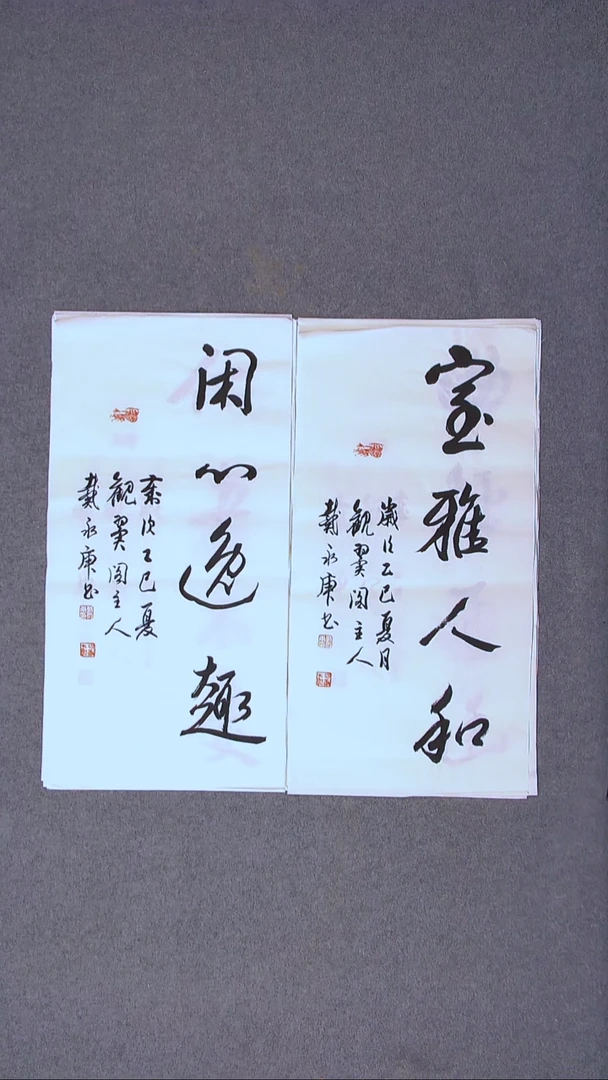 室雅人和
歲次乙巳夏月
觀翼閣主人
戴永庚书
闲心逸趣
歲次乙巳夏
觀翼閣主人
戴永庚书